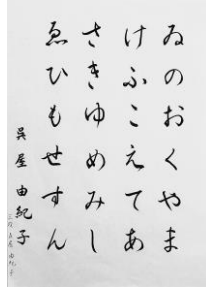 ゐのおくやま
けふこえてあ
さきゆめみし
ゑひもせすん
呉屋由紀子